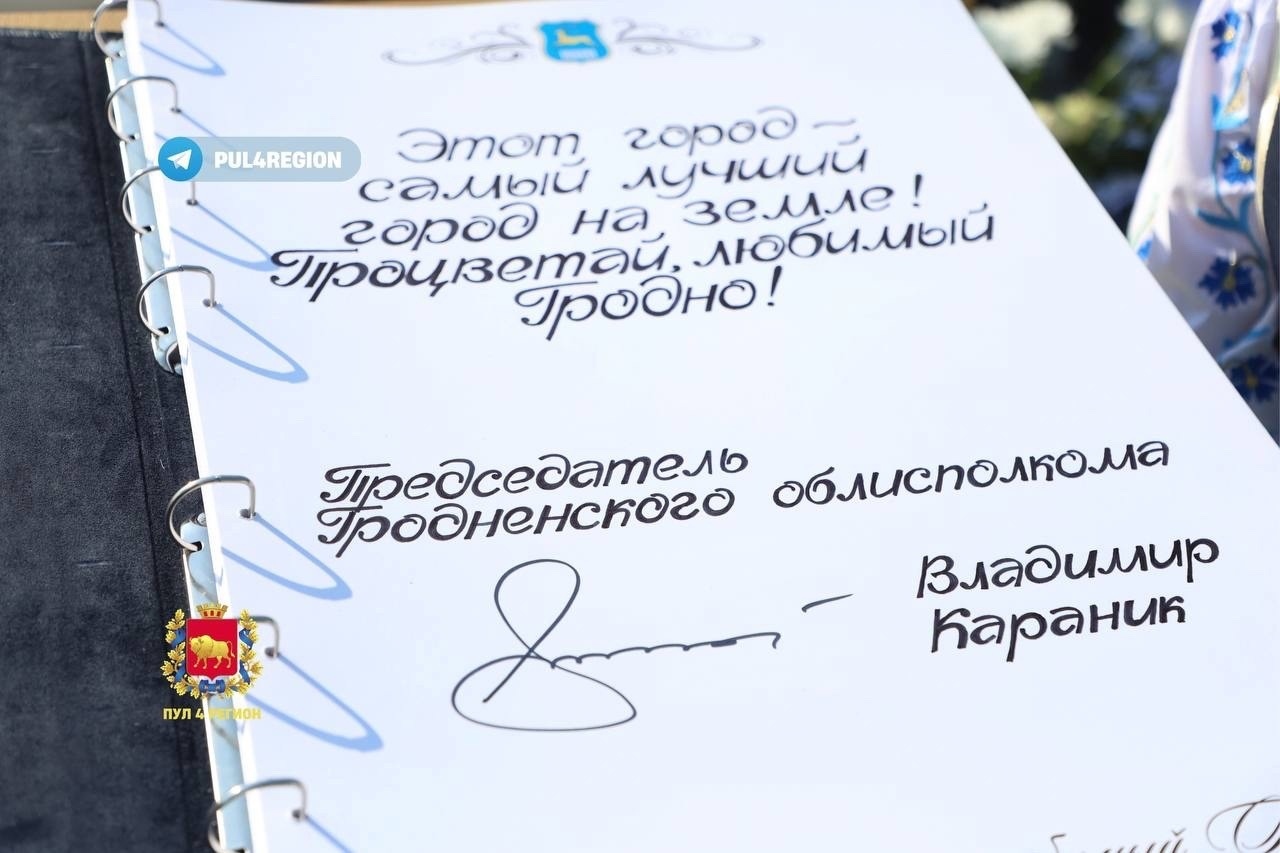 PUL4REGION
Этот город –
самый лучший
город на земле!
Процветай, любимый
Гродно!
Председатель
Гродненского облисполкома
Владимир
Караник
ПУЛ 4 РЕГИОН